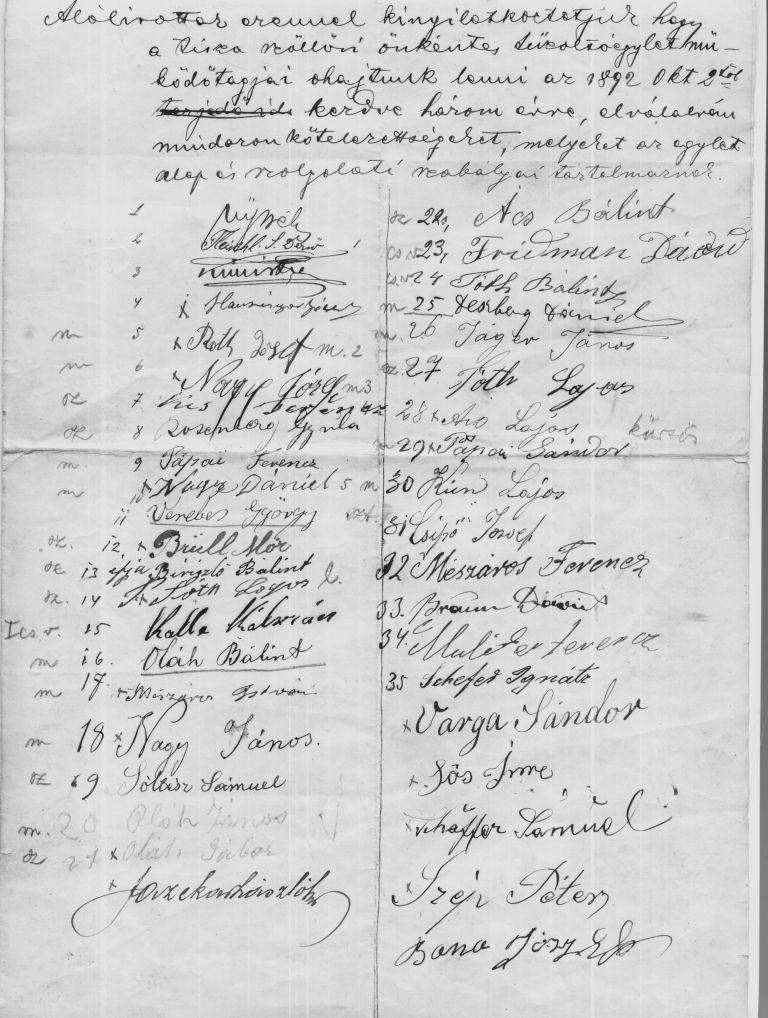 Alólirottak ezennel kinyilatkoztatjuk hogy
a tisza szöllősi önkéntes tüzoltóegylet mü-
ködőtagjai ohajtunk lenni az 1892 Okt 2től
kezdve három évre, elvállalván
mindazon kötelezettségeket, melyeket az egylet
alap és szolgálati szabályai tartalmaznak.
1
2
3
4
m 5 x Roth József m. 2
m 6 x Nagy József m 3
sz 7 Kis Ferencz
sz 8 Rosenberg Gyula
m. 9 Pápai Ferencz
m 10 x Nagy Dániel 5
11 Verebes György
sz. 12, x Brüll Mór
sz 13 ifju Bálint
sz. 14 x Tóth Lajos
I cs. v. 15 Kalla Kálmán
m 16. Oláh Bálint
m 17. x Mészáros István
m 18 x Nagy János.
sz 19 Soltész Sámuel
m. 20 Oláh János
sz 21 x Oláh Gábor
x
sz 22, Ács Bálint
cs v 23, Fridman Dávid
cs. v. 24 Tóth Bálint
m 25 Dániel
m. 26 Jáger János
sz. 27 Tóth Lajos
28 x Lajos kürtös
m 29 x Pápai Sándor
m 30 Kun Lajos
szt. 31 Csipő József
32 Mészáros Ferencz
33. Braun Dávid
34. Ferencz
35 Schefer Ignátz
x Varga Sándor
x Imre
x Schäffer Sámuel
x Szép Péter